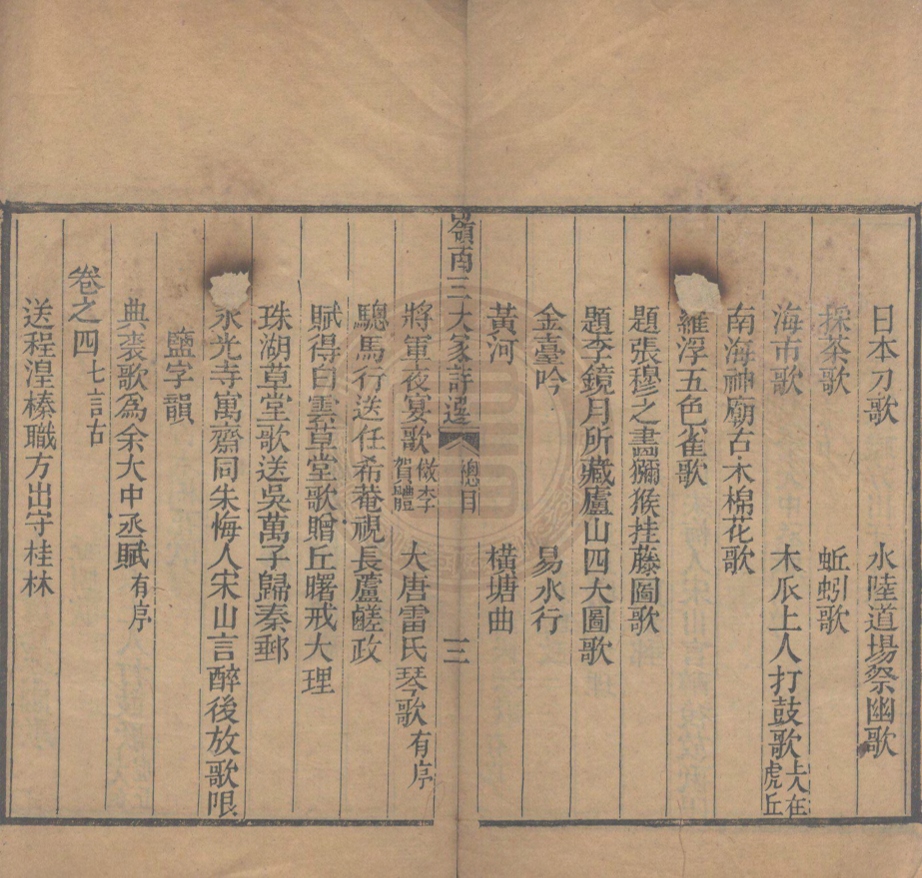 日本刀歌　水陸道場祭幽歌
採茶歌　蚯蚓歌
海市歌　木瓜上人打鼓歌上人在虎丘
南海神廟古木棉花歌
羅浮五色雀歌
題張穆之畵獼猴挂藤圖歌
題李鏡月所藏廬山四大圖歌
金臺吟　易水行
黃河　橫塘曲
嶺南三大家詩選　總目　三
將軍夜宴歌倣李賀體　大唐雷氏琴歌有序
驄馬行送任希菴視長蘆鹺政
賦得白雲草堂歌贈丘曙戒大理
珠湖草堂歌送吳萬子歸秦郵
永光寺寓齋同朱悔人宋山言醉後放歌限
鹽字韻
典裘歌爲余大中丞賦有序
卷之四七言古
送程湟榛職方出守桂林